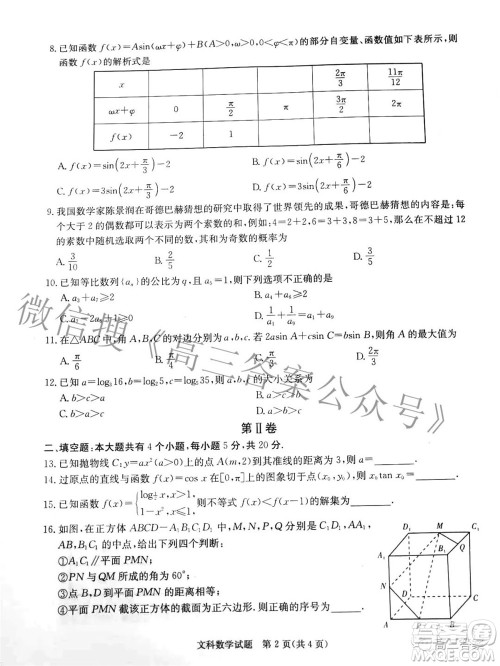 8. 已知函数 f(x)=Asin(ωx+φ)+B(A>0,ω>0,0<φ<π)的部分自变量、函数值如下表所示,则
函数 f(x)的解析式是
x 2π/3 11π/12
ωx+φ 0 π/2 π 3π/2 2π
f(x) −2 1
A. f(x)=sin(2x+π/3)−2 B. f(x)=sin(2x+π/6)−2
C. f(x)=3sin(2x+π/3)−2 D. f(x)=3sin(2x+π/6)−2
9. 我国数学家陈景润在哥德巴赫猜想的研究中取得了世界领先的成果,哥德巴赫猜想的内容是:每
个大于2的偶数都可以表示为两个素数的和,例如:4=2+2,6=3+3,8=3+5,在不超过12
的素数中随机选取两个不同的数,其和为奇数的概率为
A. 3/10 B. 2/5 C. 1/2 D. 3/5
10. 已知等比数列{aₙ}的公比为 q,且 a₅=1,则下列选项不正确的是
A. a₃+a₇≥2 B. a₄+a₆≥2
11. 在△ABC中,角A,B,C的对边分别为a,b,c,若2asin A+bsin B=3csin C,则角A的最大值为
A. π/6 B. π/4 C. π/3 D. 2π/3
12. 已知 a=log₃16,b=log₂5,c=log₅35,则 a,b,c的大小关系为
第Ⅱ卷
二、填空题:本大题共有4个小题,每小题5分,共20分.
13. 已知抛物线 C:y=ax²(a>0)上的点A(m,2)到其准线的距离为3,则a=
14. 过原点的直线与函数f(x)=cos x在[0,π]上的图象切于点(x₀,y₀),则x₀tan x₀=
15. 已知函数 则不等式f(x)<f(x−1)的解集为
16. 如图,在正方体ABCD−A₁B₁C₁D₁中,点P,Q,M,N分别为C₁D₁,AA₁,
AB,B₁C₁的中点,给出以下四个判断:
①A₁C⊥平面PMN;
②PN与QM所成的角为60°;
③CD₁∥平面PMN;
④平面PMN截该正方体的截面为五边形.
文科数学试题 第2页(共4页)
微信搜《高三答案公众号》